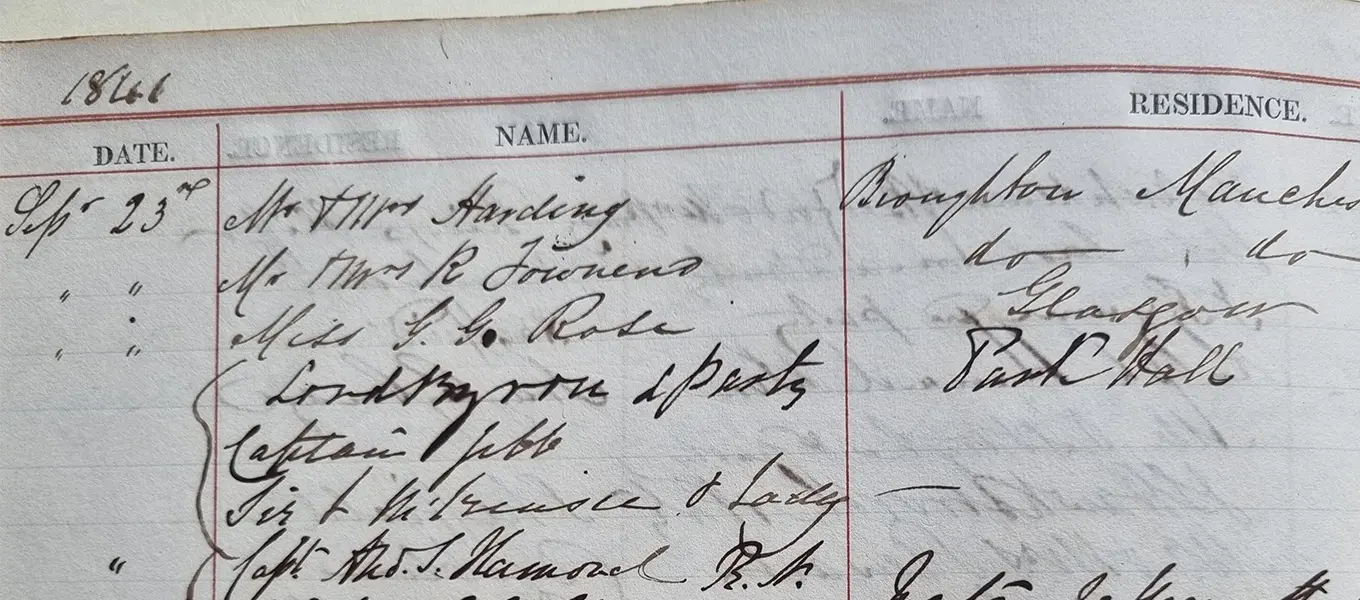 1866
DATE. NAME. RESIDENCE.
Sepr 23rd Mr & Mrs Harding Broughton Manches
" " Mr & Mrs R Townend do do
" " Miss G. G. Rose Glasgow
Lord Byron & Party Park Hall
Captain Jebb
Sir & Lady —
" Capt. And. S. Hamond R.N.